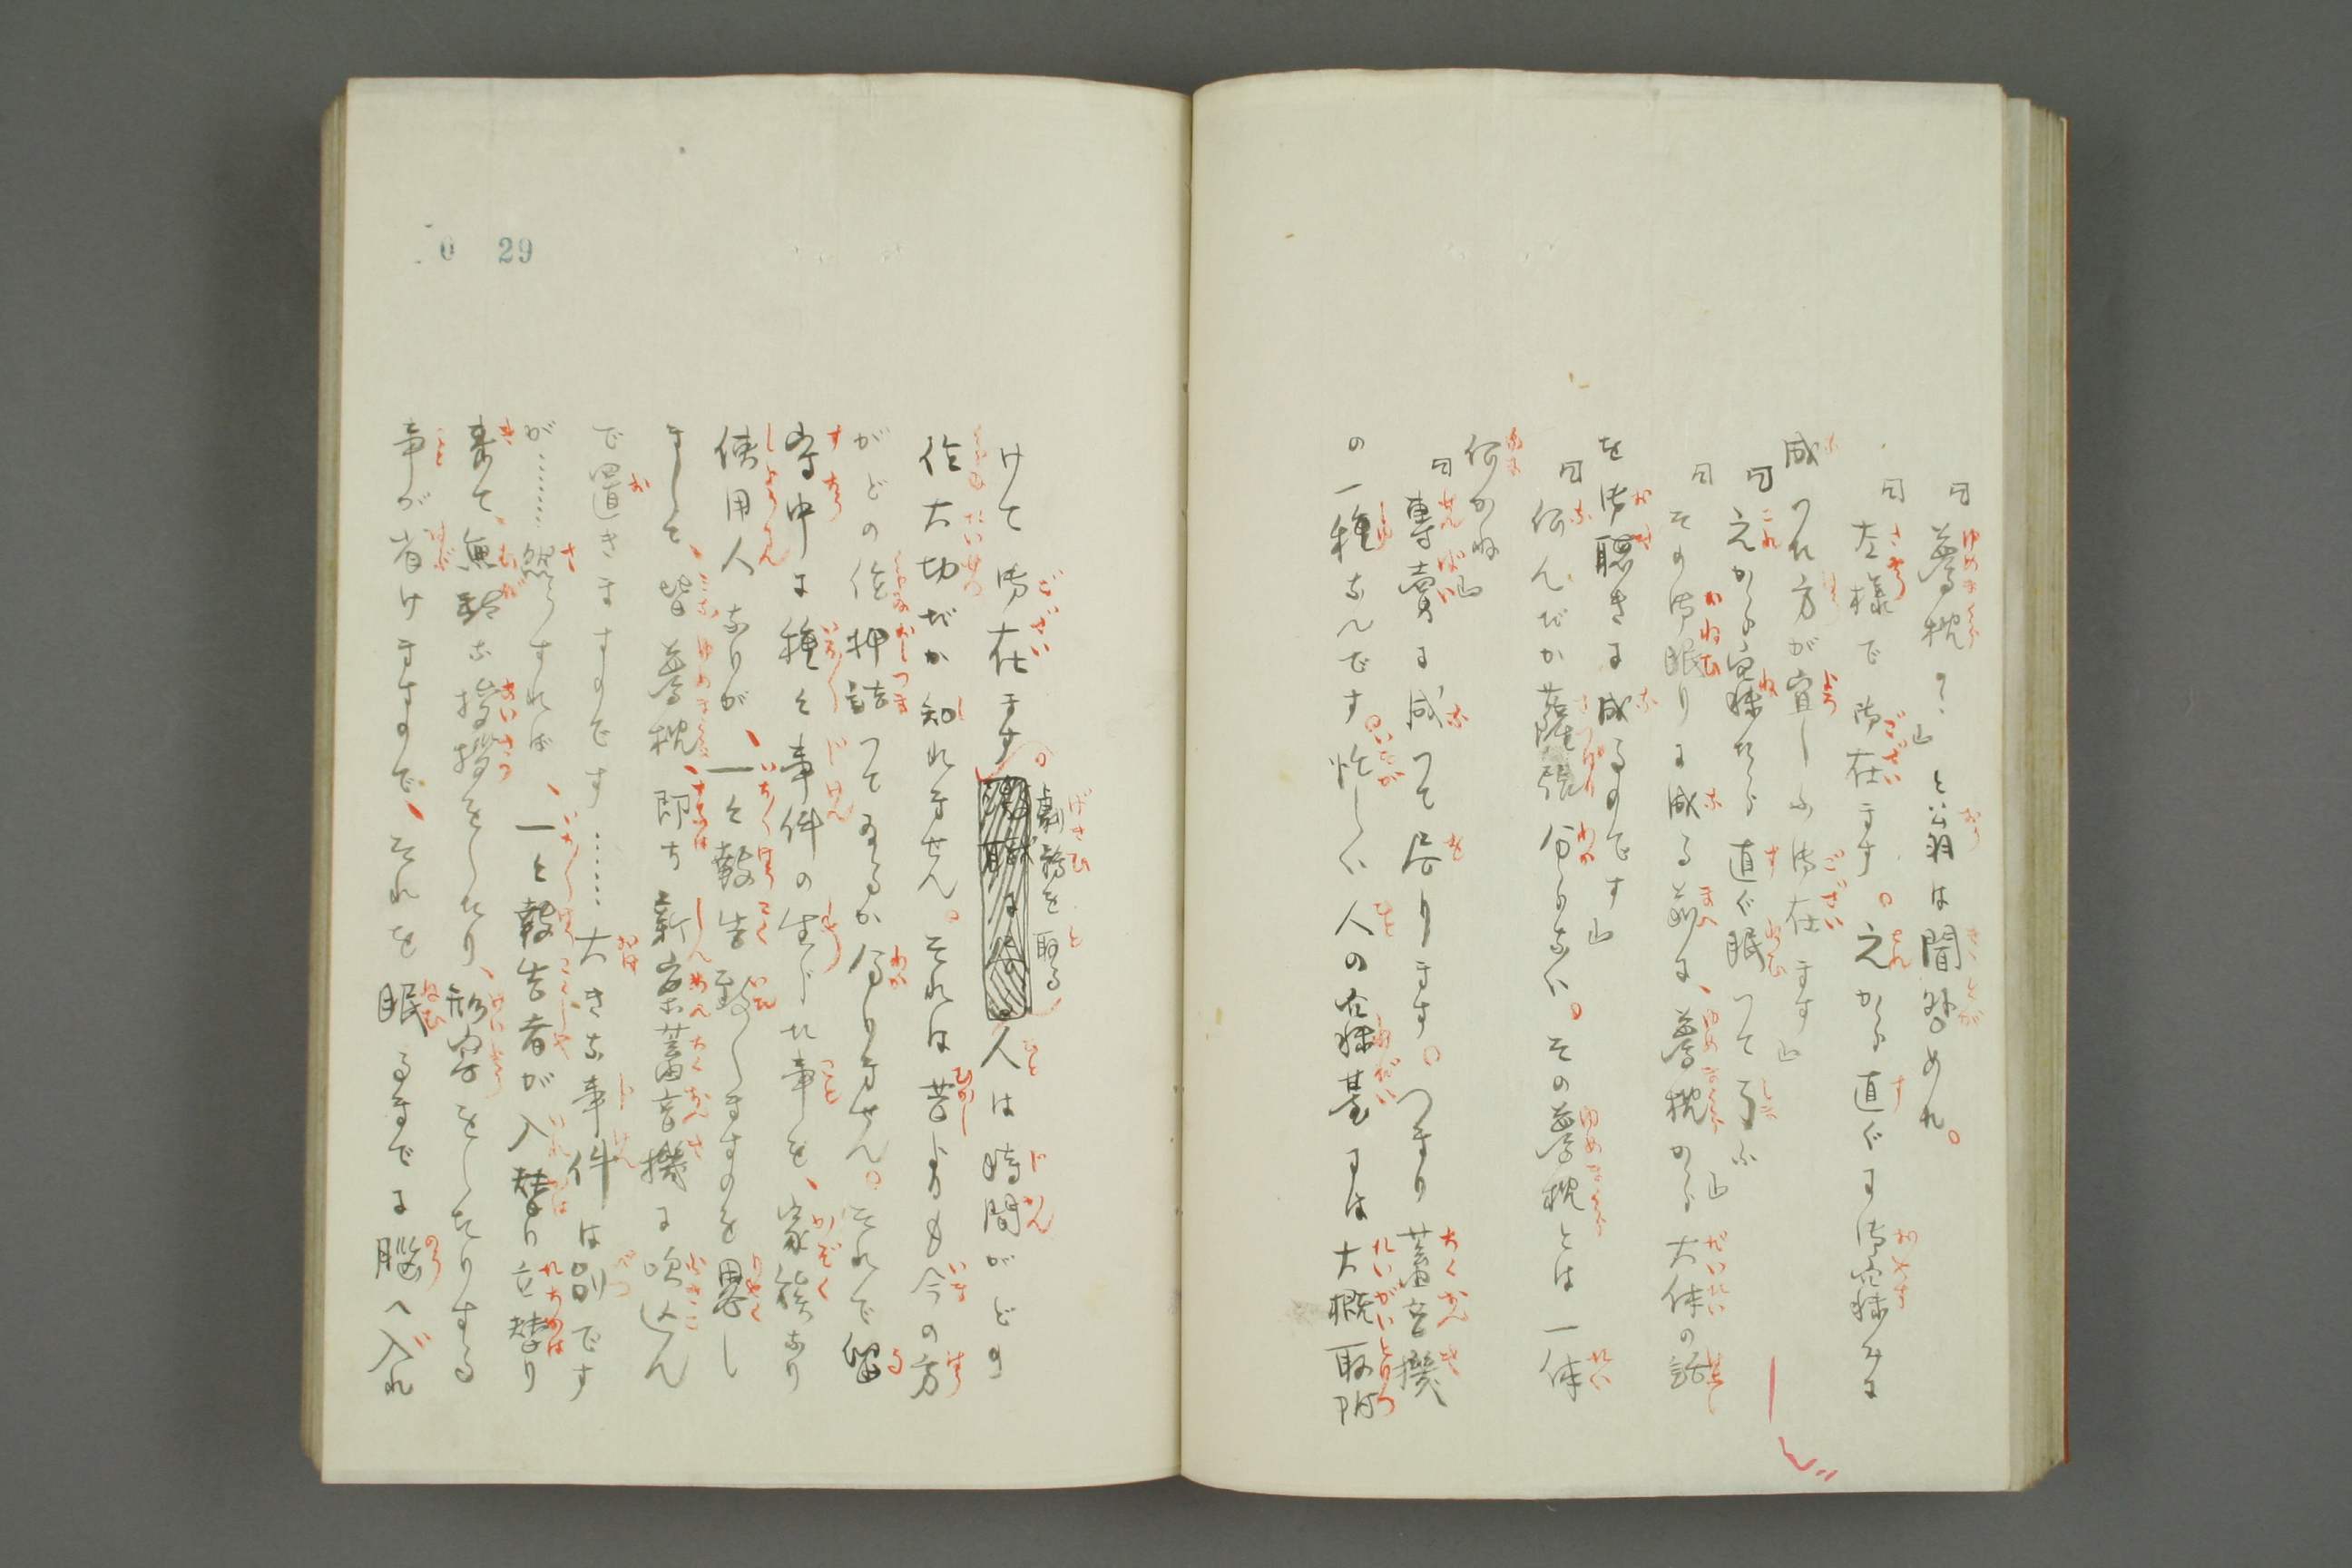 「夢枕？」と翁は聞咎めれ。
「左様で御在ます。之から直ぐに御寐みに
成つれ方が宜しふ御在ます」
「之から寐たら直ぐ眠つて了ふ」
「その御眠りに成る前に、夢枕から大体の話
を御聴きに成るのです」
「何んだか薩張分らない。その夢枕とは一体
何かね」
「専売に成つて居ります。つまり蓄音機
の一種なんです。忙しい人の寐台には大概取附
けて御在ます。劇務を取る人は時間がどの
位大切だか知れません。それは昔よりも今の方
がどの位押詰つて居るか分りません。それで留
守中に種々事件の生じた事を、家族なり
使用人なりが、一々報告致しますのを畧し
まして、皆夢枕、即ち新案蓄音機に吹込ん
で置きますのです……大きな事件は別です
が……然うすれば、一々報告者が入替り立替り
来て、無駄な挨拶をしたり、形容をしたりする
事が省けますので、それを眠るまでに脳へ入れ
0 29